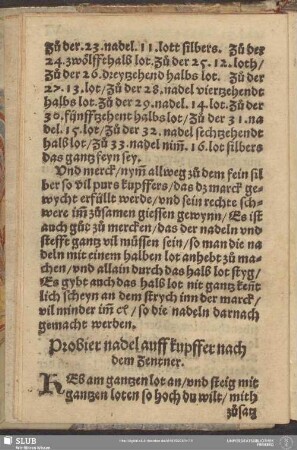 Zů der .23. nadel .11. lott silbers. Zů der
24. zwölffthalb lot. Zů der 25. 12. loth/
Zů der 26. dreytzehend halbs lot. Zů der
27. 13. lot/ Zů der 28. nadel viertzehendt
halbs lot. Zů der 29. nadel .14. lot. Zů der
30. fünfftzehent halbs lot/ Zů der 31. na⸗
del .15. lot/ Zů der 32. nadel sechtzehendt
halb lot/ Zů 33. nadel nim̃. 16. lot silbers
das gantz feyn sey.
Und merck/ nym̃ allweg zů dem fein sil
ber so vil purs kupffers/ das dz marck ge⸗
wycht erfüllt werde/ vnd sein rechte sch⸗
were im̃ zůsamen giessen gewynn/ Es ist
auch gůt zů mercken/ das der nadeln vnd
steffe gantz vil müssen sein/ so man die na
deln mit einem halben lot anhebt zů ma⸗
chen/ vnd allain durch das halb lot styg/
Es gybt auch das halb lot nit gantz kent
lich scheyn an dem strych inn der marck/
vil minder im̃ / so die nadeln darnach
gemacht werden.
Probier nadel auff kupffer nach
dem Zentner.
HEb am gantzen lot an/ vnd steig mit
gantzen loten so hoch du wilt/ mith
zůsatz
SLUB
Wir führen Wissen.